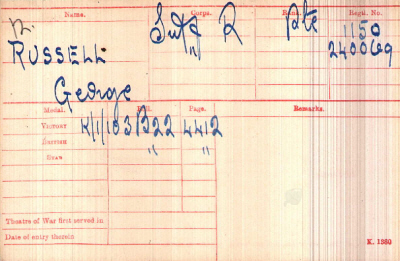 Name. Corps. Rank. Regtl. No.
RUSSELL Suff R Pte 1150
240069
George
Medal. Roll. Page. Remarks.
Victory K/1/103B22 4412
British " "
Star
Theatre of War first served in
Date of entry therein
K. 1380